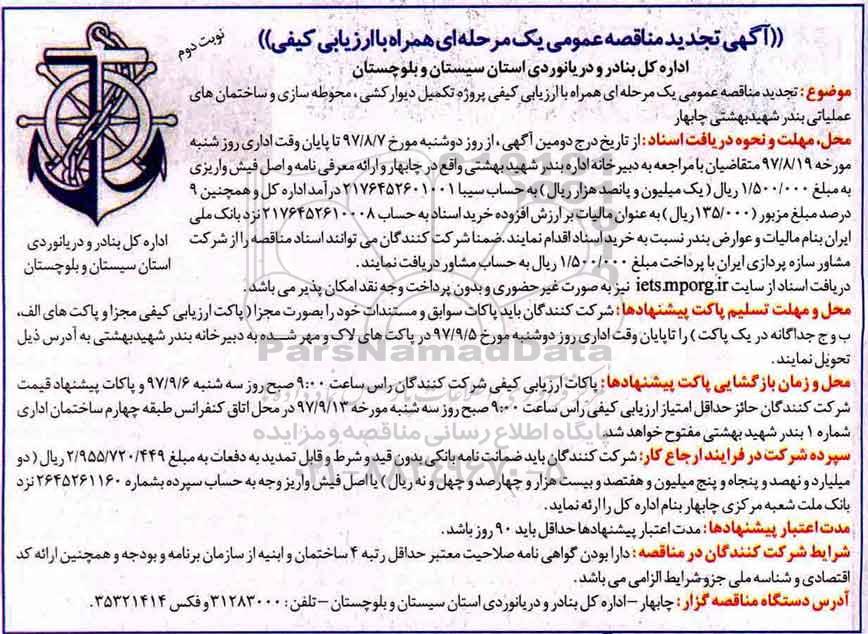 ((آگهی تجدید مناقصه عمومی یک مرحله ای همراه با ارزیابی کیفی))
نوبت دوم
اداره کل بنادر و دریانوردی استان سیستان و بلوچستان
موضوع: تجدید مناقصه عمومی یک مرحله ای همراه با ارزیابی کیفی پروژه تکمیل دیوارکشی ، محوطه سازی و ساختمان های
عملیاتی بندر شهیدبهشتی چابهار
محل، مهلت و نحوه دریافت اسناد: از تاریخ درج دومین آگهی ، از روز دوشنبه مورخ ۹۷/۸/۷ تا پایان وقت اداری روز شنبه
مورخه ۹۷/۸/۱۹ متقاضیان با مراجعه به دبیرخانه اداره بندر شهید بهشتی واقع در چابهار و ارائه معرفی نامه و اصل فیش واریزی
به مبلغ ۱/۵۰۰/۰۰۰ ریال ( یک میلیون و پانصد هزار ریال) به حساب سیبا ۲۱۷۶۴۵۲۶۰۱۰۰۱ درآمد اداره کل و همچنین ۹
درصد مبلغ مزبور (۱۳۵/۰۰۰ریال) به عنوان مالیات بر ارزش افزوده خرید اسناد به حساب ۲۱۷۶۴۵۲۶۱۰۰۰۸ نزد بانک ملی
ایران بنام مالیات و عوارض بندر نسبت به خرید اسناد اقدام نمایند.ضمنا شرکت کنندگان می توانند اسناد مناقصه را از شرکت
مشاور سازه پردازی ایران با پرداخت مبلغ ۱/۵۰۰/۰۰۰ ریال به حساب مشاور دریافت نمایند.
دریافت اسناد از سایت iets.mporg.ir نیز به صورت غیرحضوری و بدون پرداخت وجه نقد امکان پذیر می باشد.
اداره کل بنادر و دریانوردی
استان سیستان و بلوچستان
محل و مهلت تسلیم پاکت پیشنهادها: شرکت کنندگان باید پاکات سوابق و مستندات خود را بصورت مجزا ( پاکت ارزیابی کیفی مجزا و پاکت های الف،
ب و ج جداگانه در یک پاکت ) را تا پایان وقت اداری روز دوشنبه مورخ ۹۷/۹/۵ در پاکت های لاک و مهر شده به دبیرخانه بندر شهیدبهشتی به آدرس ذیل
تحویل نمایند.
محل و زمان بازگشایی پاکت پیشنهادها: پاکات ارزیابی کیفی شرکت کنندگان راس ساعت ۹:۰۰ صبح روز سه شنبه ۹۷/۹/۶ و پاکات پیشنهاد قیمت
شرکت کنندگان حائز حداقل امتیاز ارزیابی کیفی راس ساعت ۹:۰۰ صبح روز سه شنبه مورخه ۹۷/۹/۱۳ در محل اتاق کنفرانس طبقه چهارم ساختمان اداری
شماره ۱ بندر شهید بهشتی مفتوح خواهد شد.
سپرده شرکت در فرایند ارجاع کار: شرکت کنندگان باید ضمانت نامه بانکی بدون قید و شرط و قابل تمدید به دفعات به مبلغ ۲/۹۵۵/۷۲۰/۴۴۹ ریال ( دو
میلیارد و نهصد و پنجاه و پنج میلیون و هفتصد و بیست هزار و چهارصد و چهل و نه ریال ) یا اصل فیش واریز وجه به حساب سپرده بشماره ۲۶۴۵۲۶۱۱۶۰ نزد
بانک ملت شعبه مرکزی چابهار بنام اداره کل را ارئه نماید.
مدت اعتبار پیشنهادها: مدت اعتبار پیشنهادها حداقل باید ۹۰ روز باشد.
شرایط شرکت کنندگان در مناقصه: دارا بودن گواهی نامه صلاحیت معتبر حداقل رتبه ۴ ساختمان و ابنیه از سازمان برنامه و بودجه و همچنین ارائه کد
اقتصادی و شناسه ملی جزو شرایط الزامی می باشد.
آدرس دستگاه مناقصه گزار: چابهار –اداره کل بنادر و دریانوردی استان سیستان و بلوچستان –تلفن: ۳۱۲۸۳۰۰۰ و فکس ۳۵۳۲۱۴۱۴.
ParsNamadData
پایگاه اطلاع رسانی مناقصه و مزایده